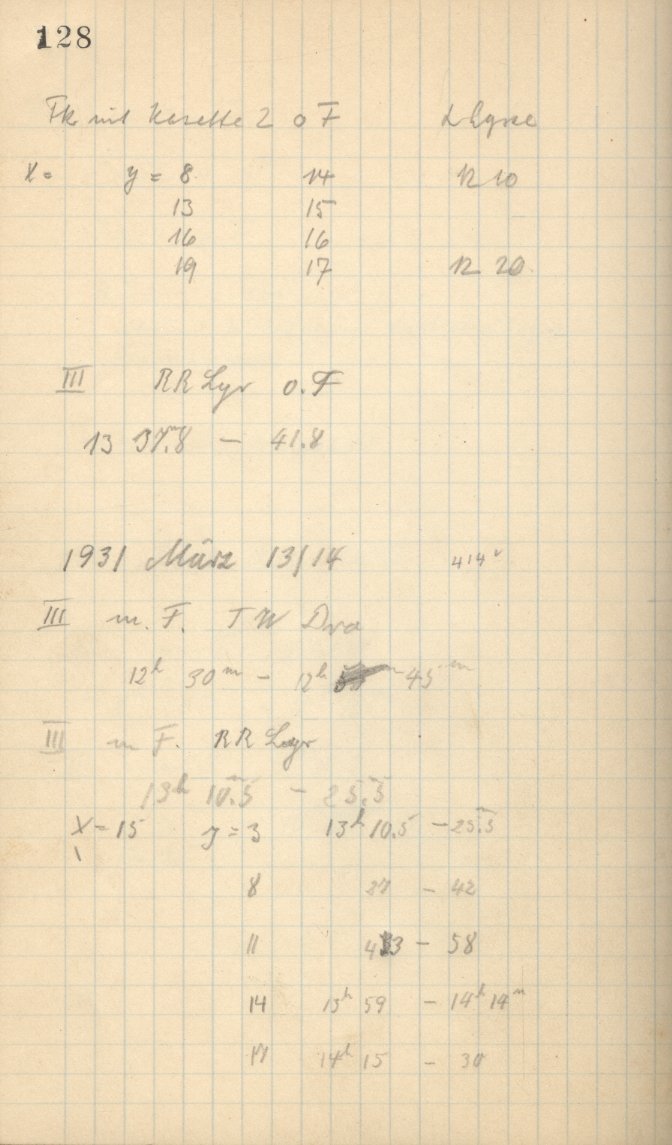 128
Fk mit Kasette 2 o F
X = y = 8 14 12 10
13 15
16 16
19 17 12 20
III RR Lyr o. F
13 37.8 — 41.8
1931 März 13/14
III m. F. TW Dra
12h 30m – 12h 45m
III m F. RR Lyr
13h 10.5 – 25.5
X = 15 y = 3 13h 10.5 – 25.5
8 27 – 42
11 43 – 58
14 13h 59 – 14h 14m
17 14h 15 – 30